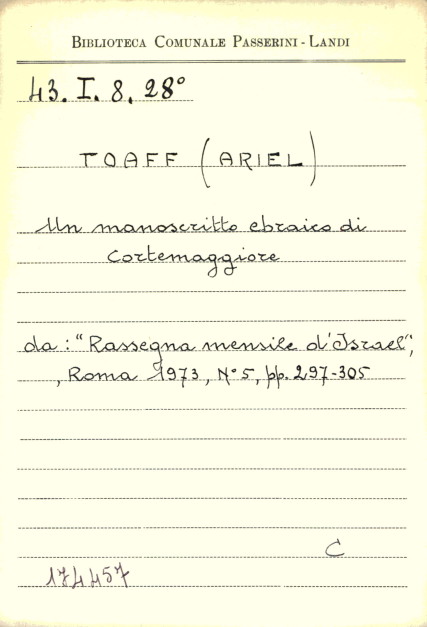 BIBLIOTECA COMUNALE PASSERINI - LANDI
43. I. 8. 28°
TOAFF (ARIEL)
Un manoscritto ebraico di
Cortemaggiore
da: "Rassegna mensile d'Israel",
, Roma 1973, N° 5, pp. 297-305
C
174457